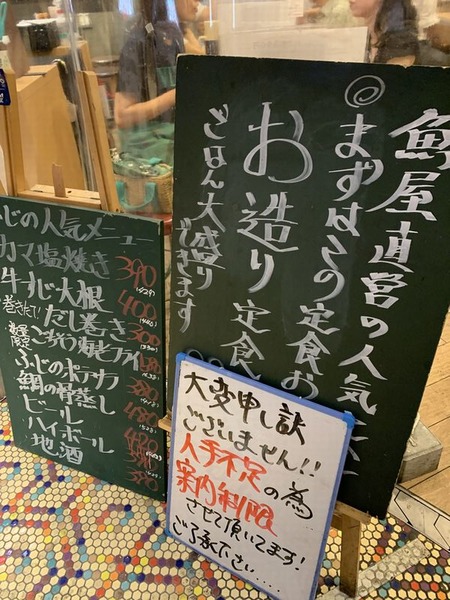 魚屋直営の人気
◎まずはこの定食お
お造り定食
ごはん大盛り
できます
ふじの人気メニュー
カマ塩焼き 390
(429)
牛すじ大根 400
(440)
巻きたて!だし巻き 300
(330)
数量限定 ごちそう海老フライ
ふじのポテサラ 380
鯛の骨蒸し 480
ビール 480
ハイボール
地酒
大変申し訳
ございません!!
人手不足の為
案内制限
させて頂いてます!
ご了承下さい....